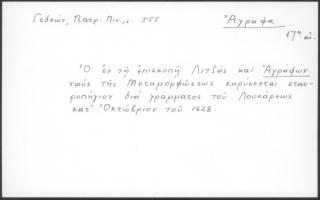 Γεδεών, Πατρ. Πιν., σ. 555
Ἄγραφα
17ος αἰ.
Ὁ ἐν τῇ ἐπισκοπῇ Λιτζᾶς καὶ Ἀγράφων
ναὸς τῆς Μεταμορφώσεως κηρύσσεται σταυ-
ροπήγιον διὰ γράμματος τοῦ Λουκάρεως
κατ' Ὀκτώβριον τοῦ 1628.